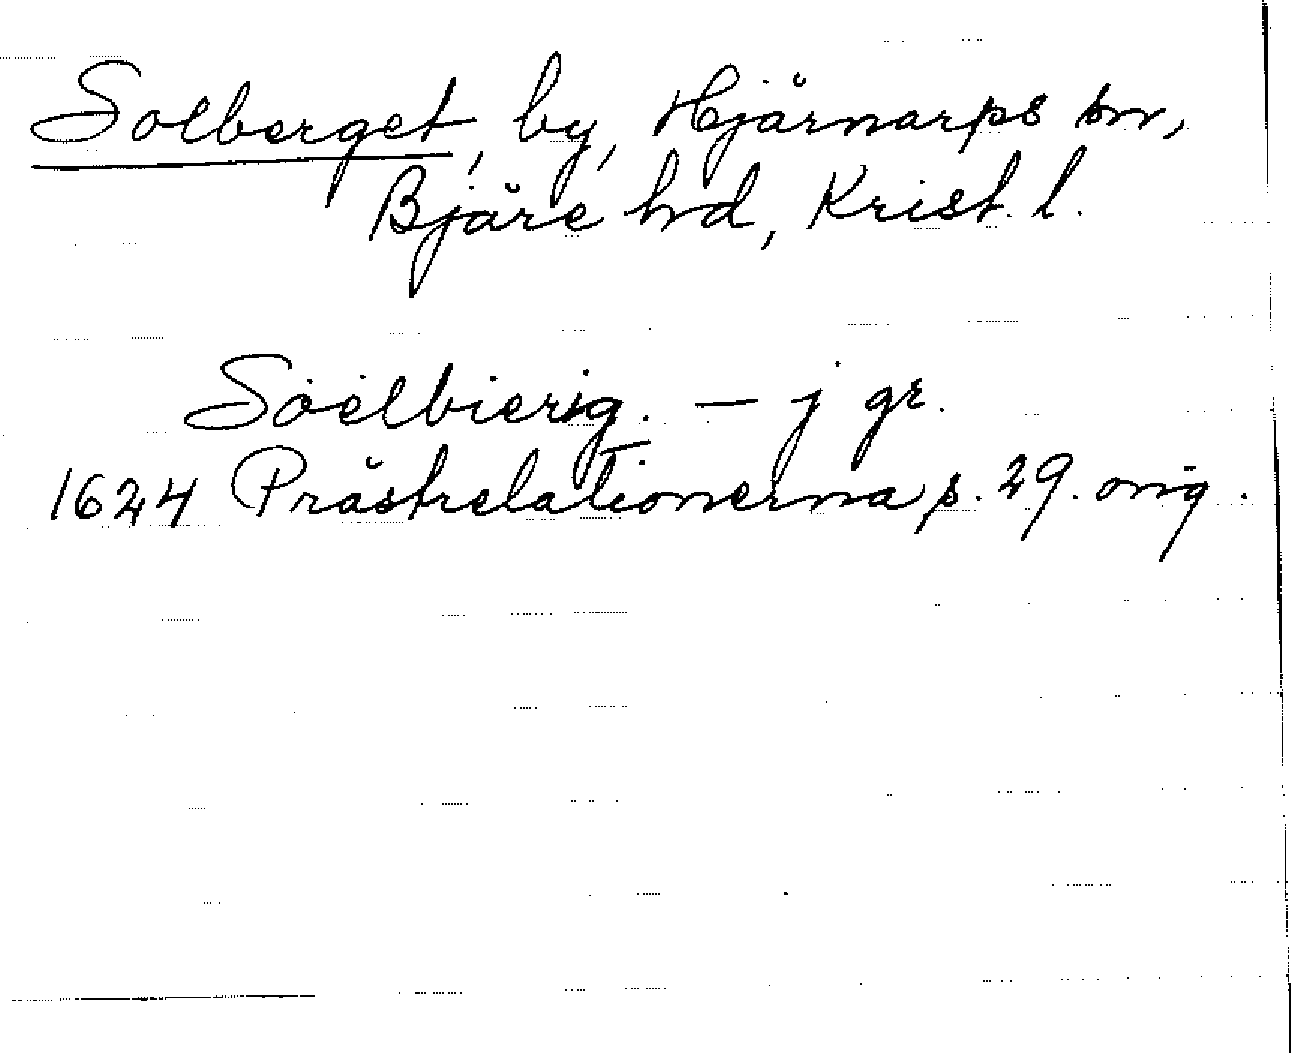 Solberget, by, Hjärnarps sn,
Bjäre hd, Krist. l.
Soelbierig. — j gr.
1624 Prästrelationerna p. 29. orig.